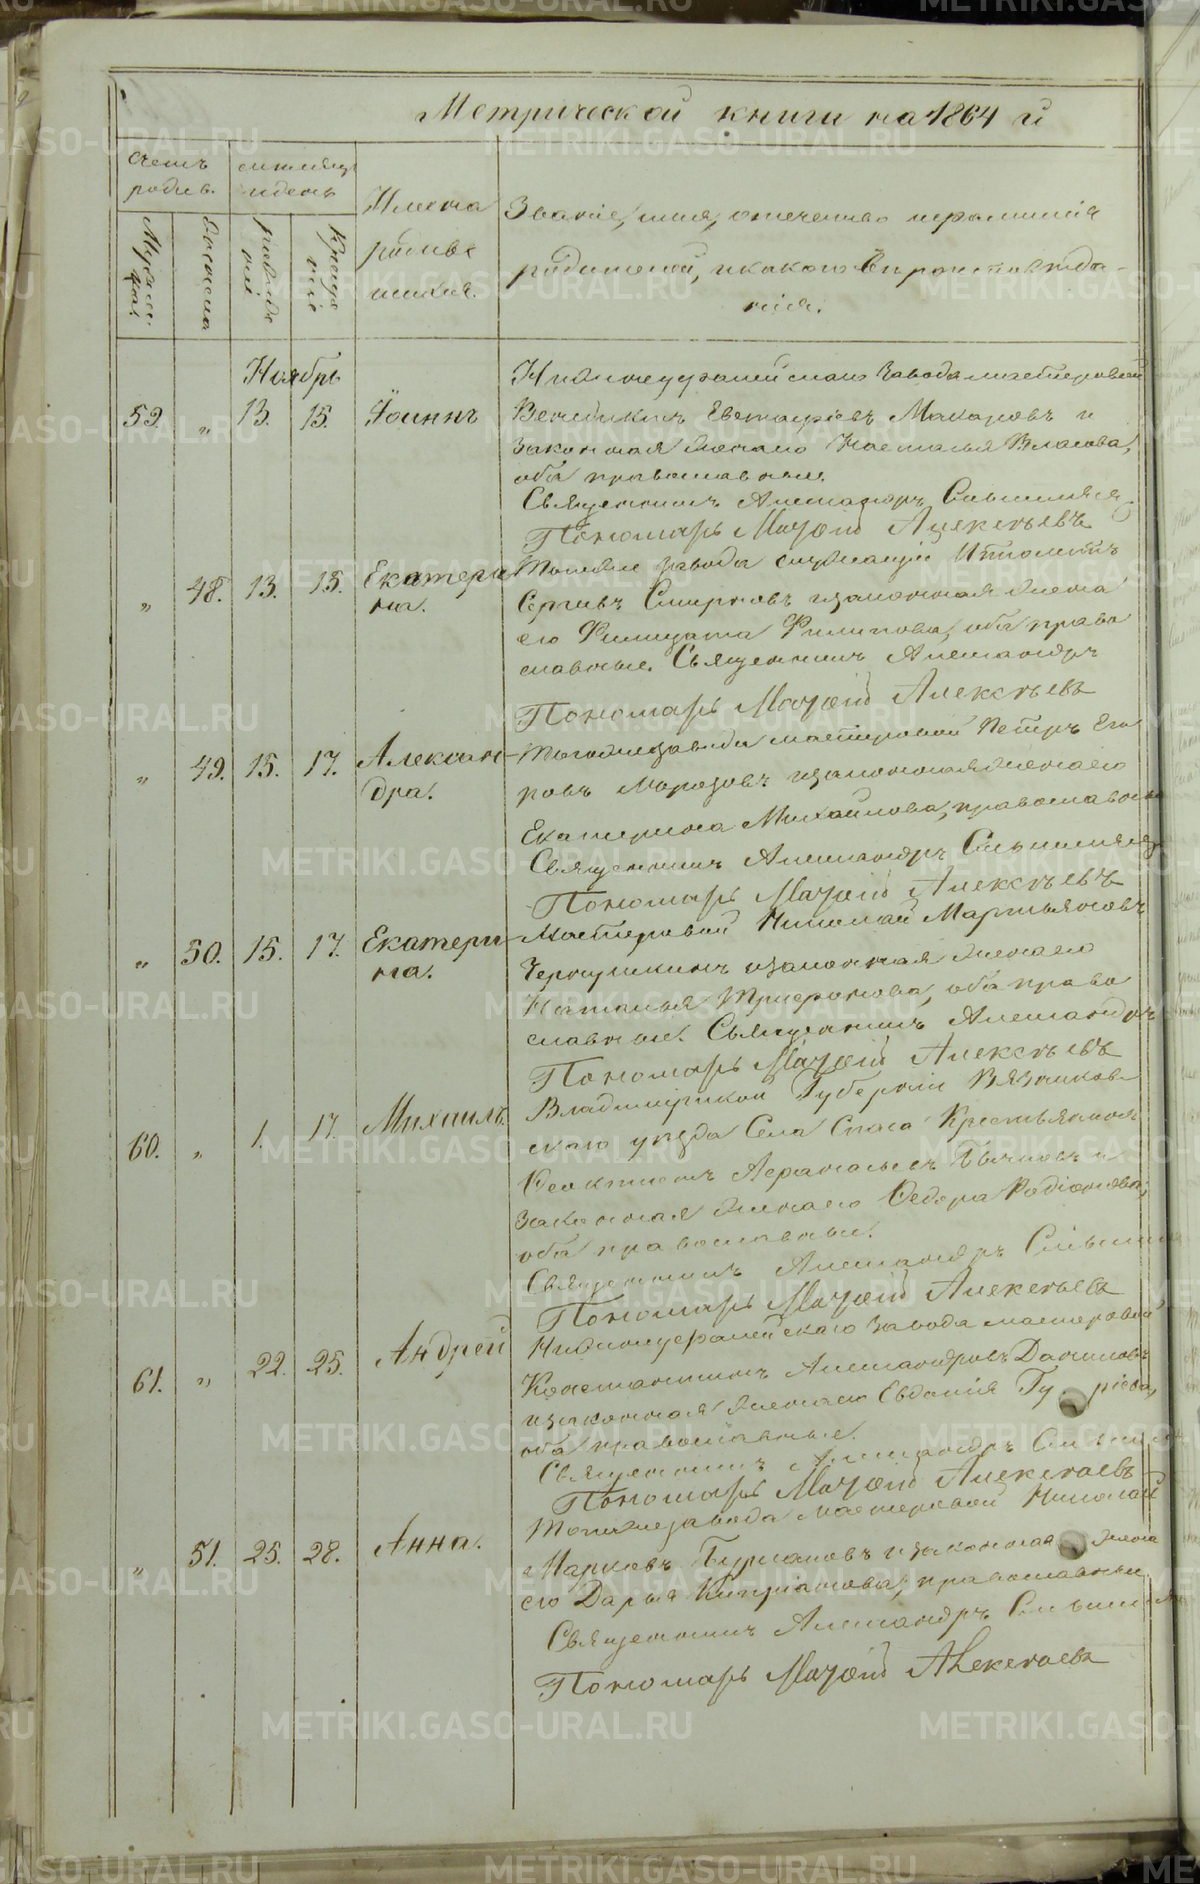 Метрической книги на 1864 й
счетъ родив.
мѣсяцъ и день
Имена родив шихся.
Званіе, имя, отечество и фамилія
родителей, и какого вѣроисповѣда-
нія.
Мужеска
Женска
рожденія
Крещенія
Ноябрь
59. „ 13. 15. Іоаннъ
Нижнеуфалейскаго Завода мастеровой
Венедиктъ Евстафіевъ Макаровъ и
законная жена его Наталья Власова,
оба православные.
Священникъ Александръ
Пономарь Матѳій Алексѣевъ
„ 48. 13. 15. Екатери на.
Тогоже завода служащій
Сергѣевъ Смирновъ и законная жена
его Филицата Филипова, оба право
славные. Священникъ Александръ
Пономарь Матѳій Алексѣевъ
„ 49. 15. 17. Алексан- дра.
Тогоже завода мастеровой Петръ Его
ровъ Морозовъ и законная жена его
Екатерина Михайлова, православные
Священникъ Александръ
Пономарь Матѳій Алексѣевъ
„ 50. 15. 17. Екатери- на.
Мастеровой Николай Мартьяновъ
Чернушкинъ и законная жена его
Наталья Трифонова, оба право
славные. Священникъ Александръ
Пономарь Матѳій Алексѣевъ
60. „ 1. 17. Михаилъ.
Владимірской Губерніи Вязников-
скаго уѣзда Села Спаса Крестьянинъ
Ѳеоктистъ и
законная жена его Ѳедора Родіонова,
оба православные.
Священникъ Александръ
Пономарь Матѳій Алексѣевъ
61. „ 22. 25. Андрей
Нижнеуфалейскаго Завода мастеровой
Константинъ Александровъ Даниловъ
и законная жена его Евдокія
оба православные.
Священникъ Александръ
Пономарь Матѳій Алексѣевъ
„ 51. 25. 28. Анна.
Тогоже завода мастеровой Николай
Марковъ и законная жена
его Дарья Кипріанова, православные.
Священникъ Александръ
Пономарь Матѳій Алексѣевъ
METRIKI.GASO-URAL.RU